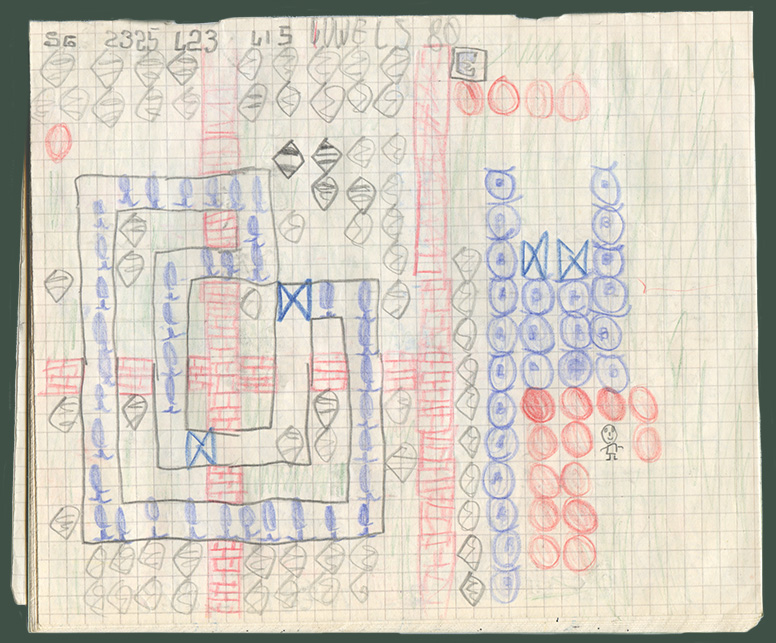 SG 2325 423 415 JUWELS 80